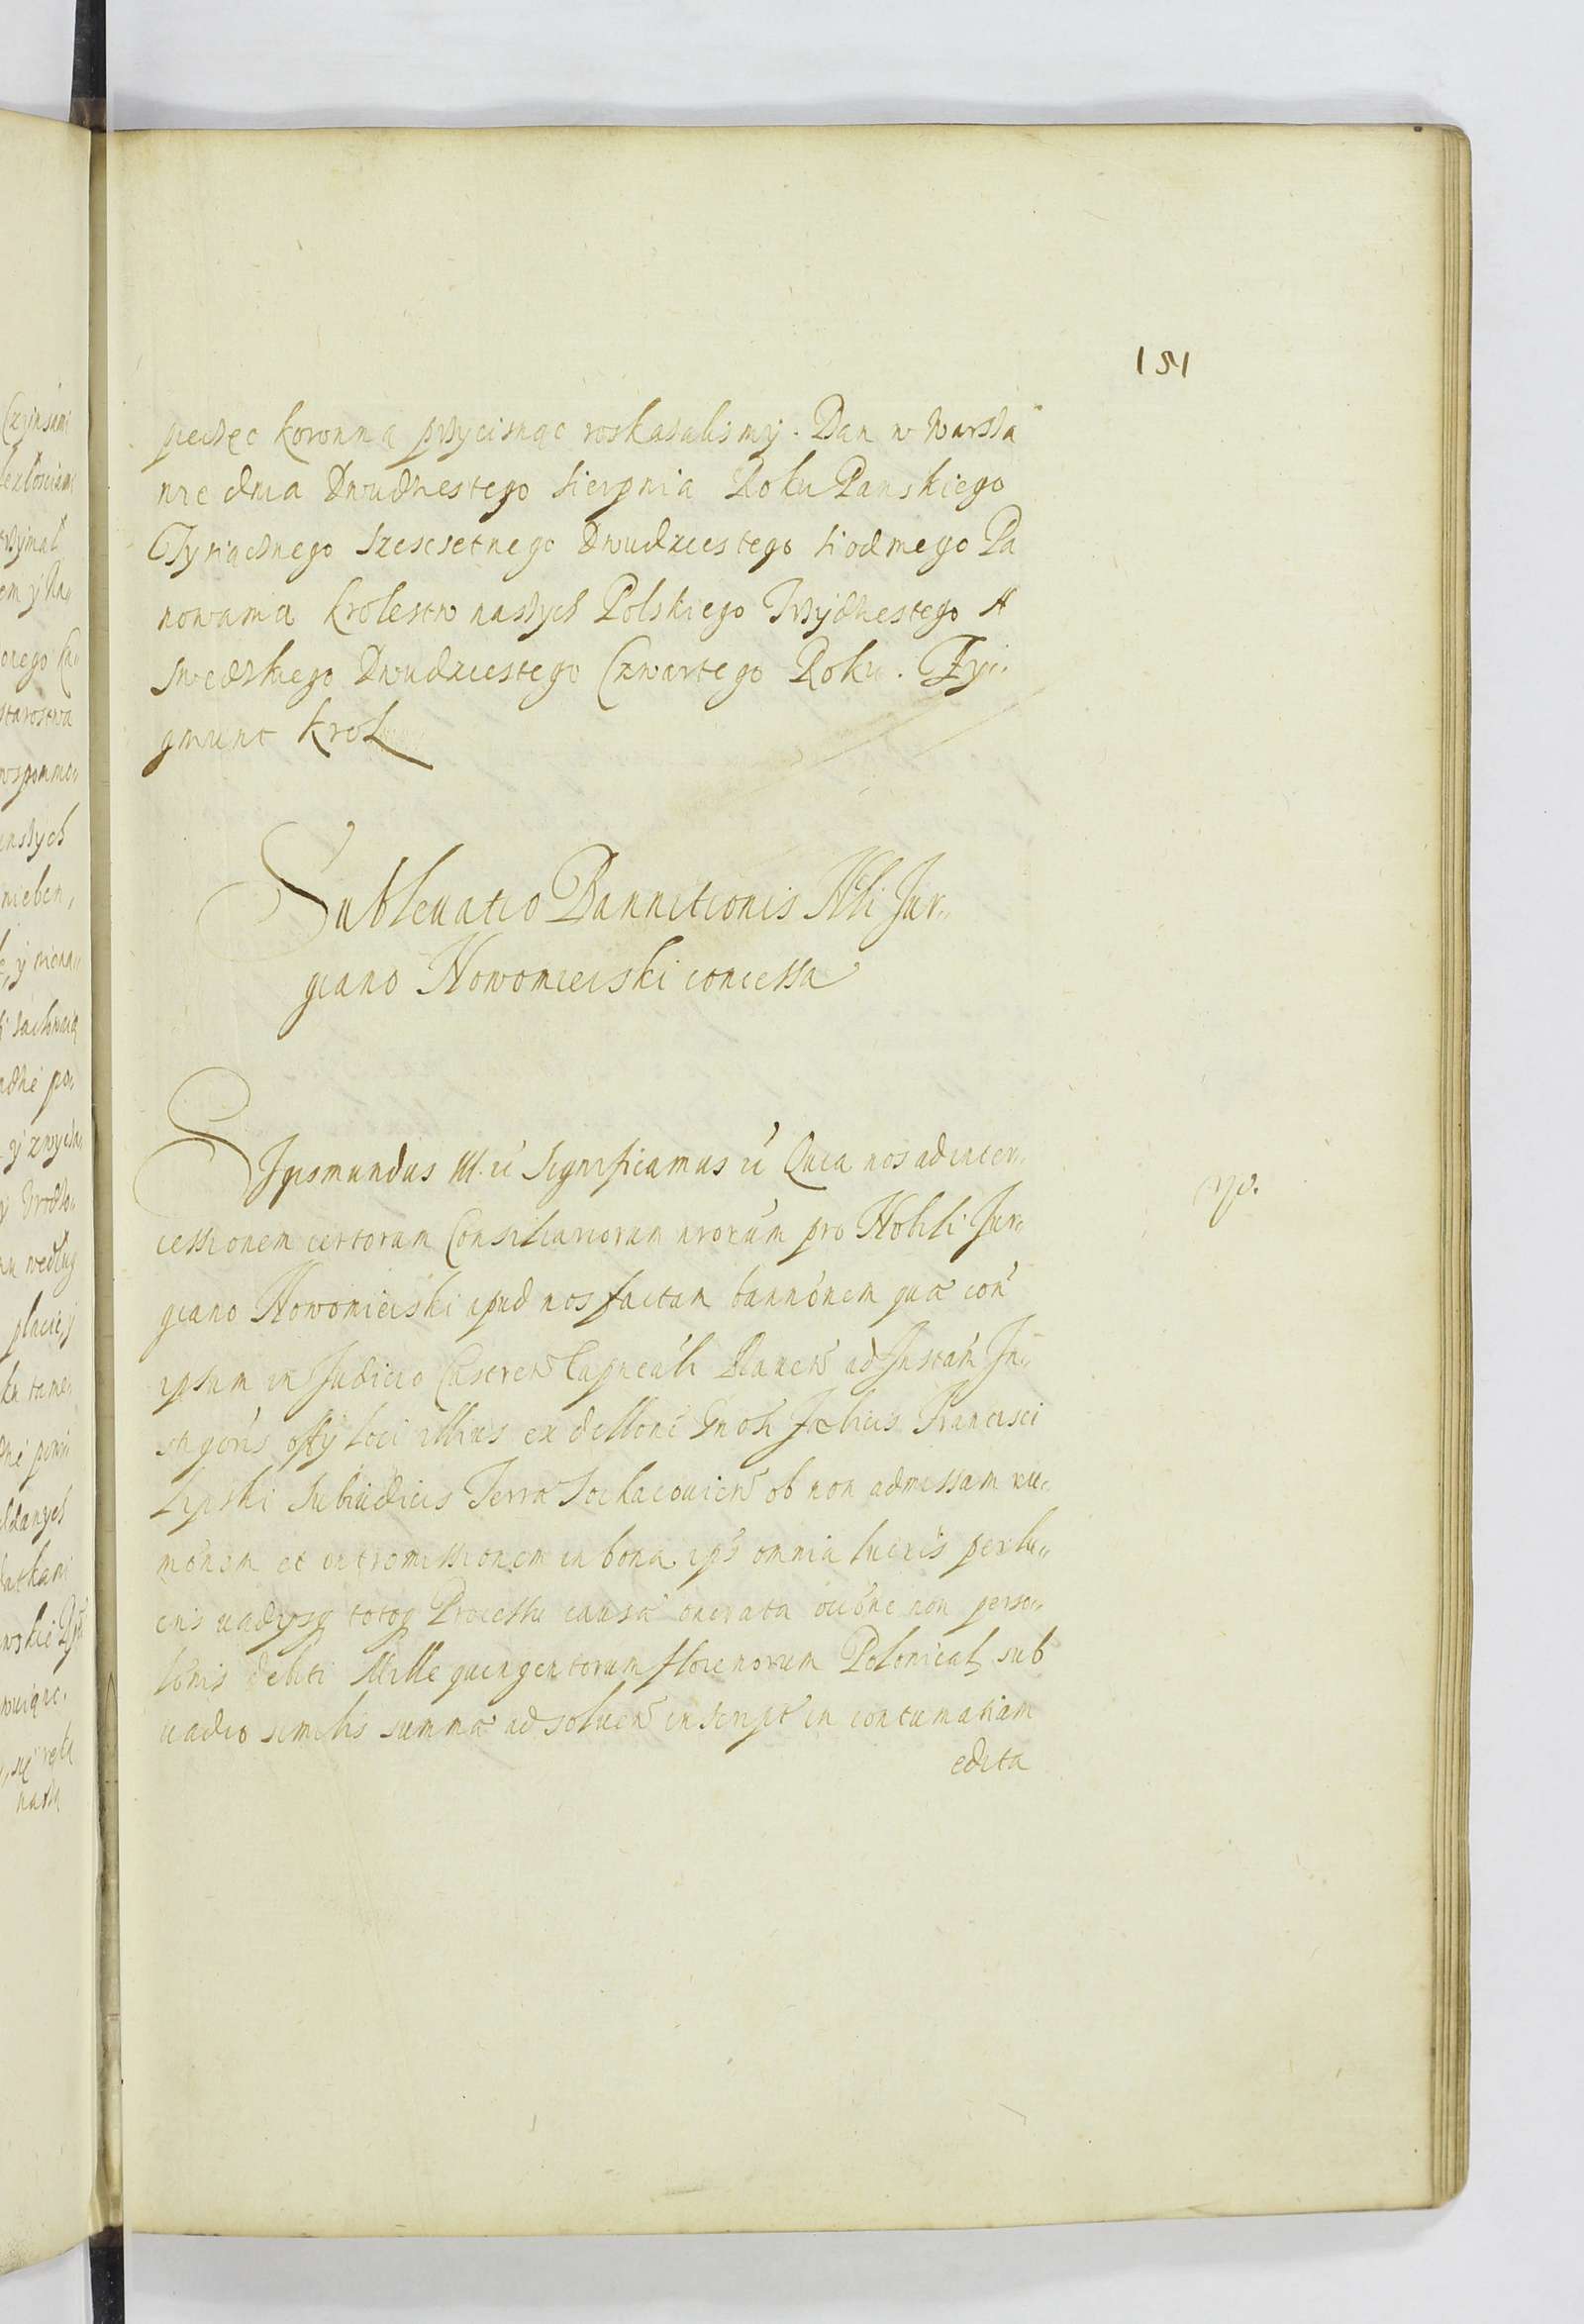 151
pieczęc koronną przycisnąc roskazalismÿ. Dan w Warsza
wie dnia Dwudziestego Sierpnia Roku Panskiego
Tysiącznego Szescsetnego Dwudziestego siodmego Pa
nowania Krolestw naszych Polskiego Trzÿdziestego A
Szwedzkiego Dwudziestego Czwartego Roku. Zyi
gmunt Krol
Subleuatio Bannitionis Nli Jur„
giano Nowomieiski concessa
Sigismundus III. ec Significamus ec Quia nos ad inter„
cessionem certorum Consiliariorum nrorum pro Nobili Jur„
giano Nowomieiski apud nos factam bannonem qua con
ipsum in Judicio Castren Capneali ad Instam In„
stigoris offÿ loci illius ex dellone Gnosi Francisci
Lipski Subiudicis Terræ Sochacouien ob non admissam
monem et intromissionem in bona ips omnia lucris perlu„
cris uadÿsq totoq Processu causæ onerata non perso„
lonis debiti Mille quingentorum florenorum Polonical sub
uadio similis summæ ad soluen inscript in contumatiam
edita